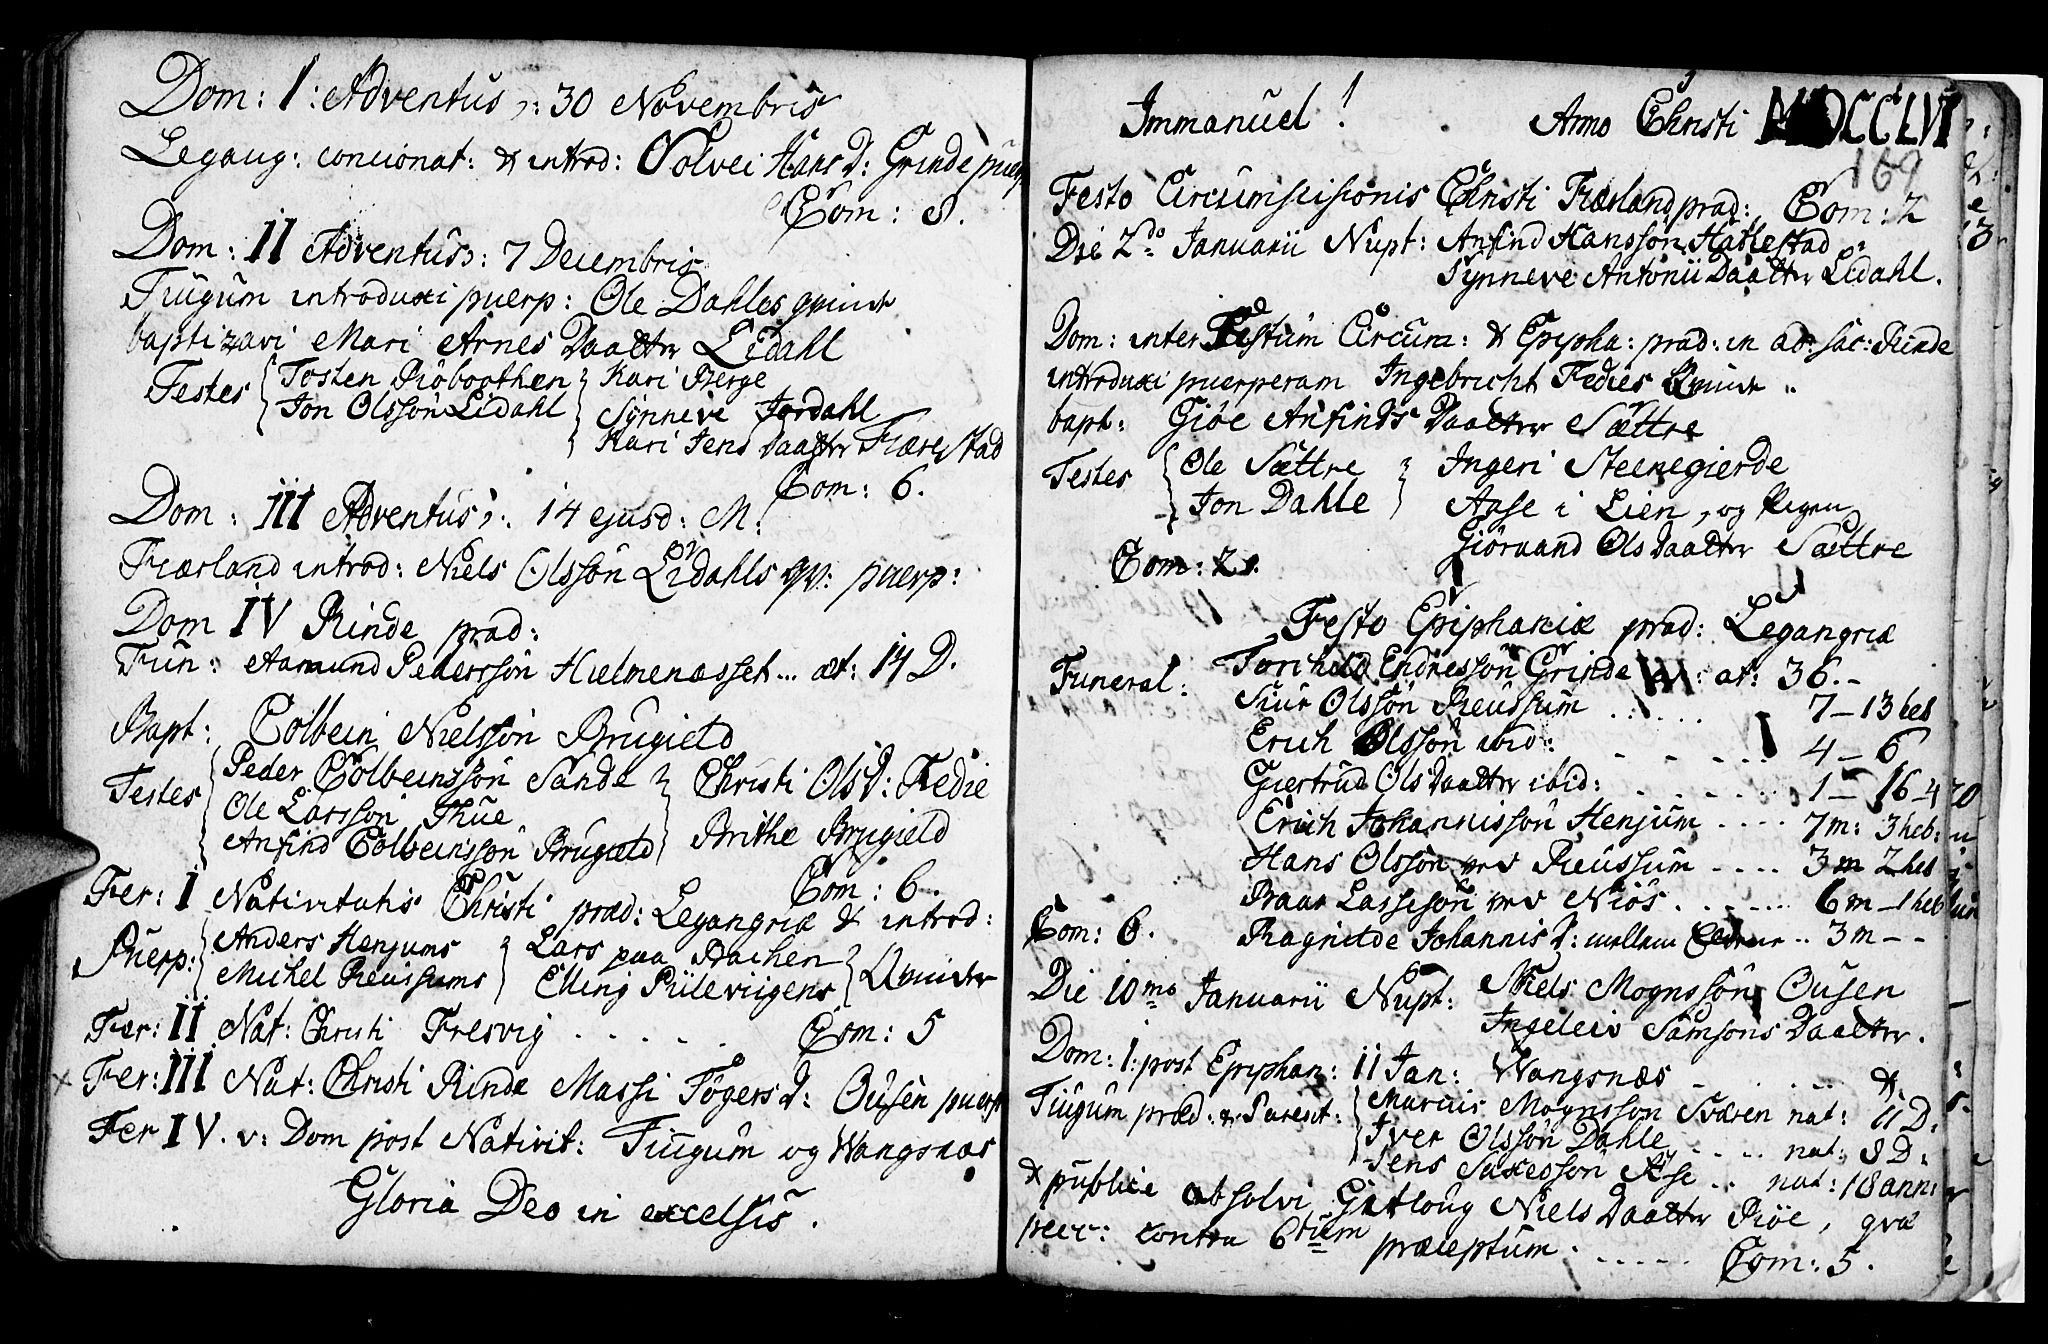 Dom: I: Adventus ɔ: 30 Novembris
Legang: concionat: & introd: Solvei Hans D: Grinde puerp
Com: 8.
Dom: II Adventus ɔ: 7 Decembris
Tiugum introduxi puerp: Ole Dahles qvinde
baptizavi Mari Arnes Daatter Eidahl
Testes Tosten Röbotthen Kari Berge
Jon Olssön Lidahl Synneve Jordahl
Kari Jens Daatter Fiærestad
Com: 6.
Dom: III Adventus ɔ: 14 ejusd: M:
Fiærland introd: Niels Olssön Eidahls qv: puerp:
Dom IV Rinde præd:
Fun: Aamund Pederssön Hielmenæsset... æt: 14 D.
Bapt: Colbein Nielssön Brugield
Testes Peder Colbeinssön Sande Christi Ols D: Fedie
Ole Larssön Thue
Anfind Colbeinssön Brugield Brithe Brugield
Com: 6.
Fer: I Nativitatis Christi præd: Legangriæ & introd:
Puerp: Anders Henjums Lars paa Bachen Qvinder
Michel Reussums Elling Piileviigens
Fer: II Nat: Christi Fresvig . . . . . Com: 5
x Fer: III Nat: Christi Rinde Massi Togers D: Ousen puerp
Fer IV. v: Dom post Nativit: Tiugum og Wangsnæs
Gloria Deo in excelsis.
Immanuel! Anno Christi MDCCLVI
169
Festo Circumscisionis Christi Fiærland præd: Com: 2
Die 2do Januarii Nupt: Anfind Hanssön Hatlestad
Synneve Antonii Daatter Eidahl.
Dom: inter Festum Circum: & Epipha: præd: in æd: sac: Rinde
introduxi puerperam Ingebricht Fedies Qvinde
bapt: Giöe Anfinds Daatter Sættre
Testes Ole Sættre Ingeri Steenegierde
Jon Dahle Aase i Lien, og Pigen
Giöruand Ols Daatter Sættre
Com: 21.
Festo Epiphaniæ præd: Legangriæ
Funeral: Torchild Endressön Grinde æt: 36.-
Siur Olssön Reussum ..... 7 - 13 heb
Erich Olssön ibid: - - - - - 4 - 6
Giertrud Ols Daatter ibid: . . . . . 1 - 16 - 4
Erich Johannissön Henjum .... 7 m: 3 heb:
Hans Olssön Reussum .... 3 m 2 heb
Baar Lassesön Niös ...... 6 m - 1 heb
Com: 6. Ragnilde Johannis D: mellem .. 3 m - -
Die 10mo Januarii Nupt: Niels Mognssön Ousen
Ingeleiv Samsons Daatter.
Dom: 1: post Epiphan: 11 Jan: Wangsnæs . . . . . &
Tiugum præd: & Parent: Marcus Mognsson Sværen nat: 11 D.
Iver Olssön Dahle .... nat: 8 D:
Jens Saxessön .. nat: 18 ann:
& publice absolvi Gutloug Niels Daatter Röe, qvæ
pecc: contra 6tum præceptum. . . . . . Com: 5.